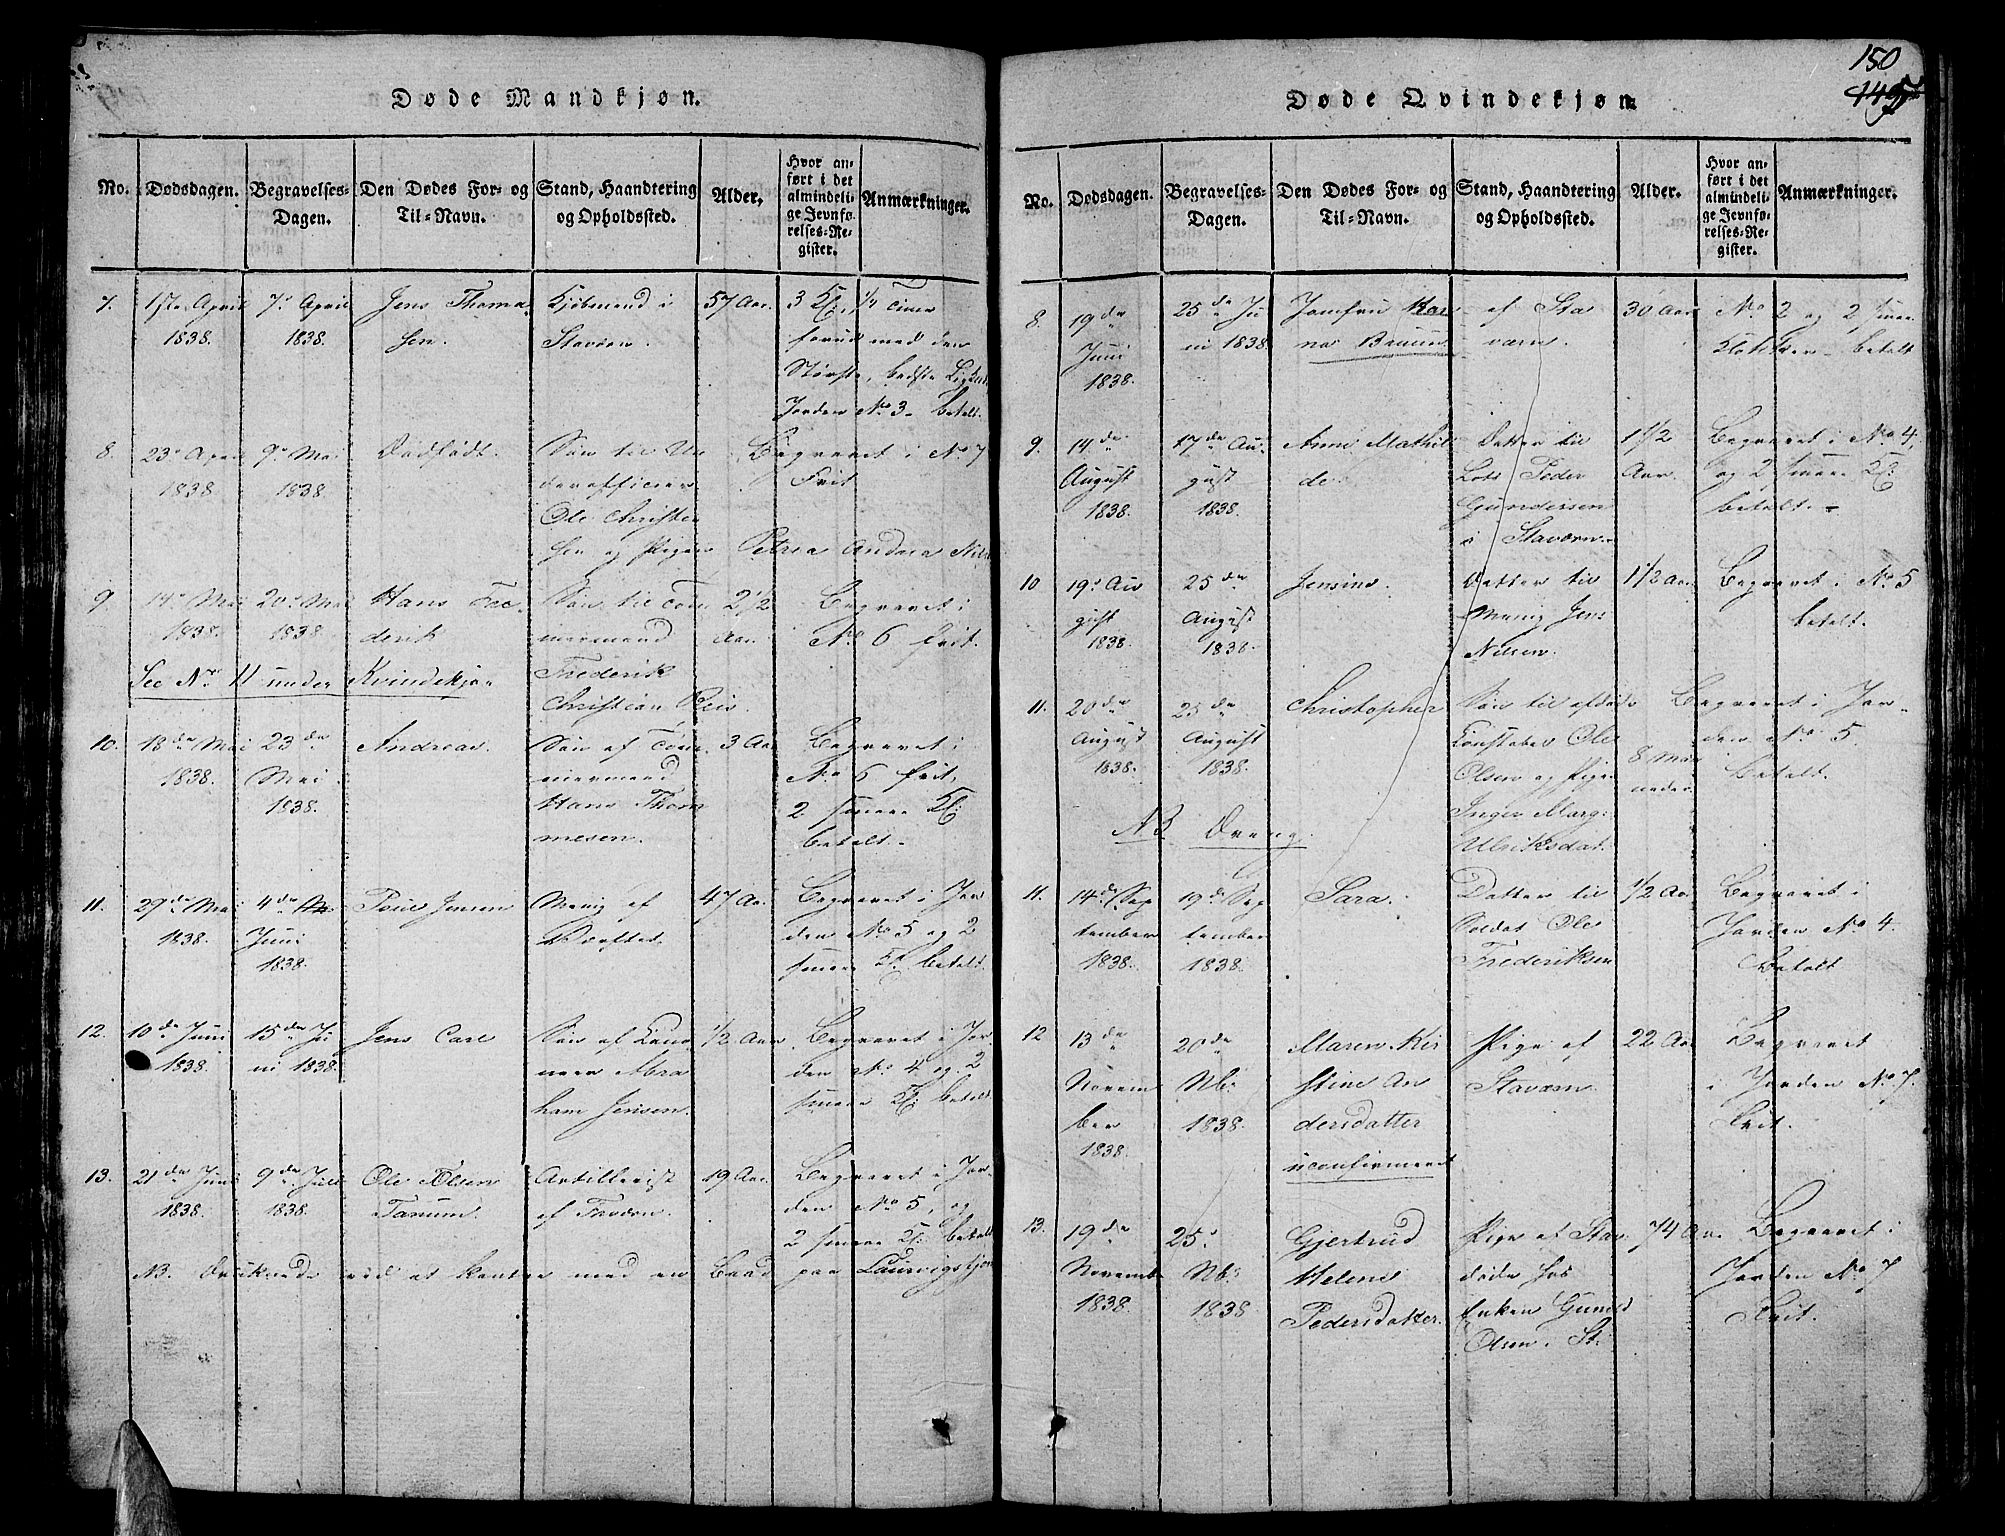 150
149
Døde Mandkjøn.
No.
Dødsdagen.
Begravelses-
Dagen.
Den Dødes For- og
Til-Navn.
Stand, Haandtering
og Opholdssted.
Alder.
Hvor an-
ført i det
almindeli-
ge Jevnfø-
relses-Re-
gister.
Anmærkninger.
7.
April
1838.
7de April
1838.
Jens Thoma
sen.
Kjøbmand i
Stavern.
57 Aar.
3 Kl. 1/4 Time
forud med den
Største,
Jorden No 3 - betalt.
8.
23de April
1838
9de Mai
1838
Dødfødt.
Søn til Un
derofficier
Ole Christen
sen og Pigen Petrea Andrea
Begravet i No 7
Frit
9
14de Mai
1838.
20de Mai
1838
Hans Fre
derik
Søn til Tøm
mermand
Frederik
Christian
2 1/2
Aar.
Begravet i
No 6 frit.
See No 11 under Kvindekjøn
10.
18de Mai
1838.
23de
Mai
1838.
Andreas.
Søn af Tøm
mermand
Hans Thom
mesen.
3 Aar
Begravet i
No 6 frit,
2 smaae Kl:
betalt.
11.
29de Mai
1838.
4de
Juni
1838.
Poul Jensen
Menig af
Værftet.
47 Aar.
Begravet i Jor
den No 5 og 2
smaae Kl. betalt.
12.
10de Juni
1838.
15de Ju
ni 1838.
Jens Carl
Søn af
Abra
ham Jensen.
1/2 Aar
Begravet i Jor
den No 4 og 2
smaae Kl: betalt
13.
21de Juni
1838.
9de Juli
1838.
Ole Olsen
Tanum.
Artillerist
af
19 Aar.
Begravet i Jor-
den No 5, og
2 smaae Kl: betalt
NB. Druknede ved at kantre med en Baad paa Laurvigsfjor
Døde Qvindekjøn.
No.
Dødsdagen.
Begravelses-
Dagen.
Den Dødes For- og
Til-Navn.
Stand, Haandtering
og Opholdssted.
Alder.
Hvor an-
ført i det
almindeli-
ge Jevnfø-
relses-Re-
gister.
Anmærkninger.
8.
19de
Juni
1838.
25de Ju
ni 1838.
Jomfru Kar
na Bruun
af Sta
vern.
30 Aar
No 2 og 2 smaae
Klokker - betalt
9.
14de
August
1838.
17de Au-
gust
1838.
Anne Mathil
de.
Datter til
Lots Peder
Gundersen
i Stavern.
1 1/2
Aar.
Begravet i No 4,
og 2 smaae Kl:
betalt.
10
19de Au
gust
1838.
25de
August
1838.
Jensine.
Datter til
Menig Jens
Nilsen.
1 1/2 Aar.
Begravet i No 5
betalt.
11.
20de
August
1838.
25de
August
1838.
Christopher
Søn til afdøde
Konstabel Ole
Olsen og Pige
Inger Marg:
Ulriksdat.
8 Maa
neder.
Begravet i Jor-
den No 5.
Betalt.
NB Dreng.
11.
14de Sep
tember
1838.
19de Sep
tember
1838.
Sara.
Datter til
Soldat Ole
Frederiksen
1/2 Aar
Begravet i
Jorden No 4.
Betalt
12
13de
Novem
ber
1838.
20de
Nb:
1838.
Maren Kir
stine An
dersdatter
uconfirmeret
Pige af
Stavern.
22 Aar
Begravet
i Jorden No 7.
Frit.
13.
19de
Novemb:
1838.
25de
Nb:
1838
Gjertrud
Helene
Pedersdatter.
Pige af Stav
døde hos
Enken Guneld
Olsen. St:
74 Aar.
Begravet i
Jorden No 7
Frit.